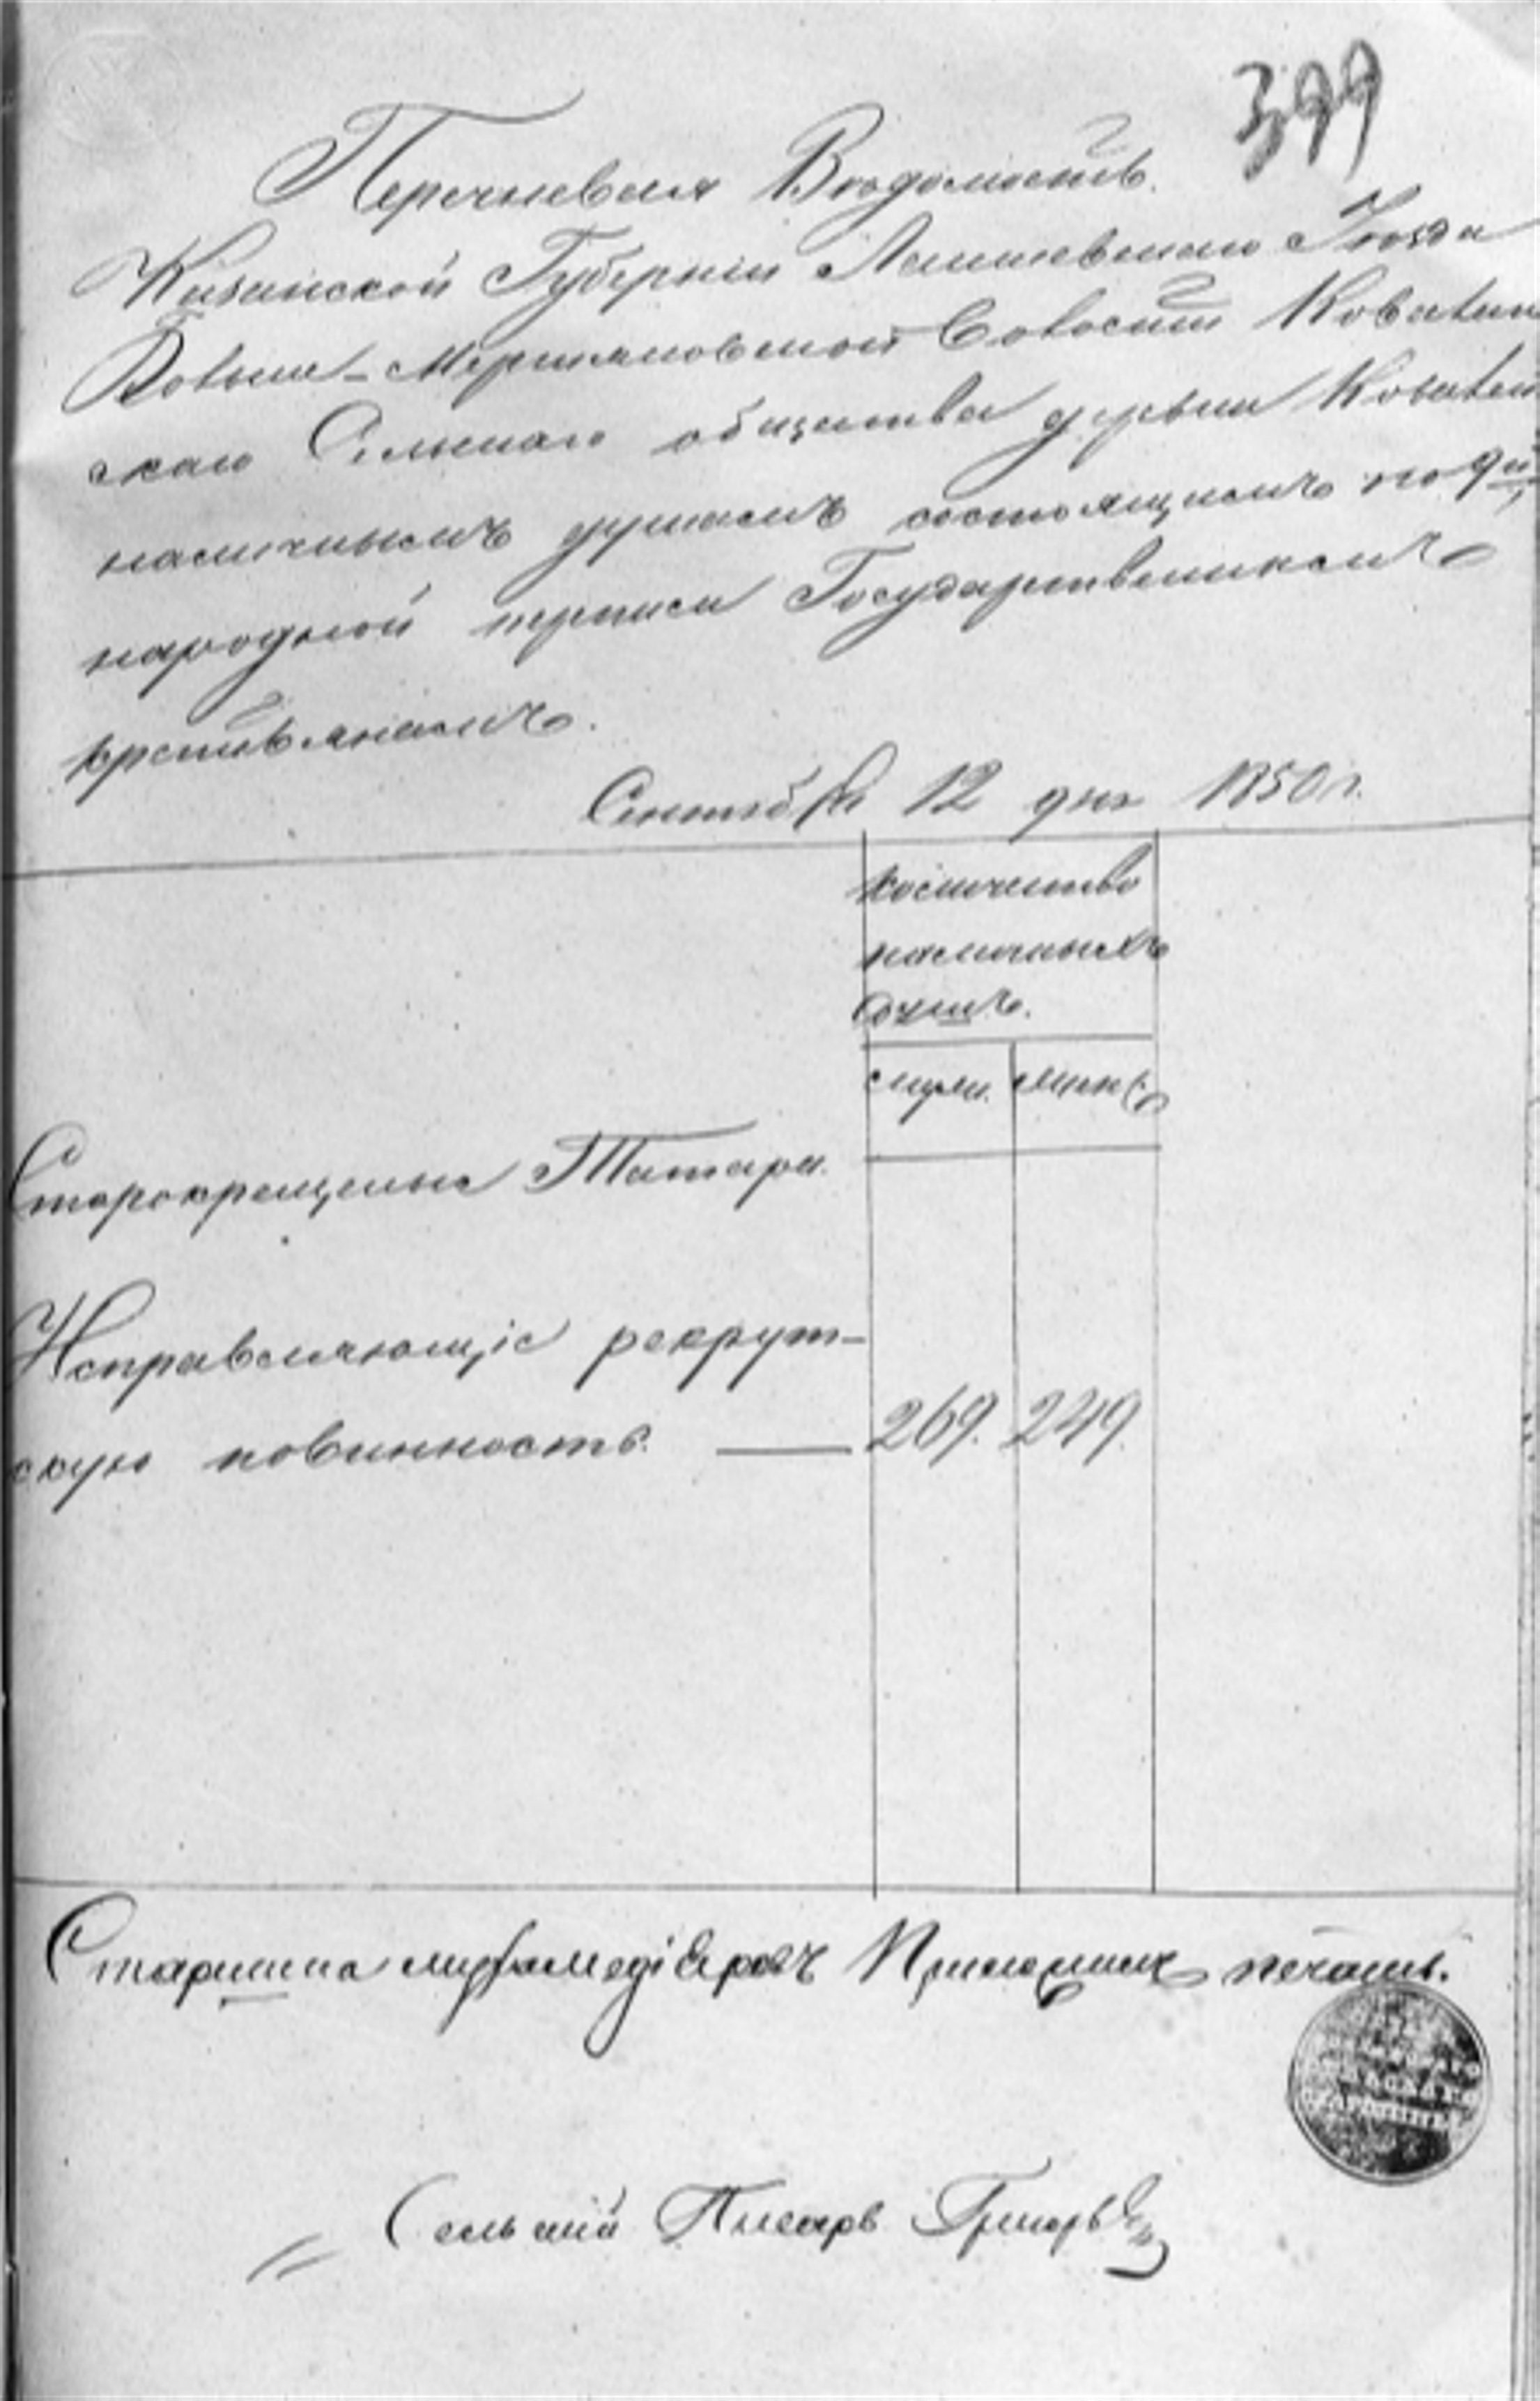 399
Перечневая Ведомость.
Казанской Губернiи Лаишевскаго Уезда
Больше-Метесковской Волости Ковали
скаго Сельскаго общества деревни Ковалей
наличнымъ душамъ состоящимъ по 9й
народной переписи Государственнымъ
крестьянамъ.
Сентября 12 дня 1850 г.
количество
наличныхъ
душъ.
муж. женс.
Старокрещеные Татара.
Исправляющiе рекрут-
скую повинность. — 269. 249.
Старшина печать.
СТАРШИНЫ
Сельскiй Писарь Григорьев